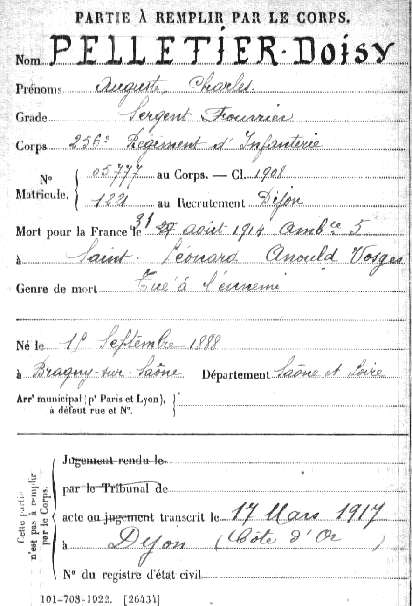 PARTIE À REMPLIR PAR LE CORPS.
Nom PELLETIER-DOISY
Prénoms Auguste Charles
Grade Sergent Fourrier
Corps 256e Régiment d'Infanterie
No 05777 au Corps. — Cl. 1908
Matricule. 1221 au Recrutement Dijon
Mort pour la France le 31 27 août 1914 Ambce 5
à Saint-Léonard Anould Vosges
Genre de mort Tué à l'ennemi
Né le 1er Septembre 1888
à Bragny-sur-Saône Département Saône et Loire
Arrt municipal (pr Paris et Lyon),
à défaut rue et No.
Cette partie n'est pas à remplir par le Corps.
Jugement rendu le
par le Tribunal de
acte ou jugement transcrit le 17 Mars 1917
à Dijon (Côte d'Or)
No du registre d'état civil
101-708-1922. [26434]